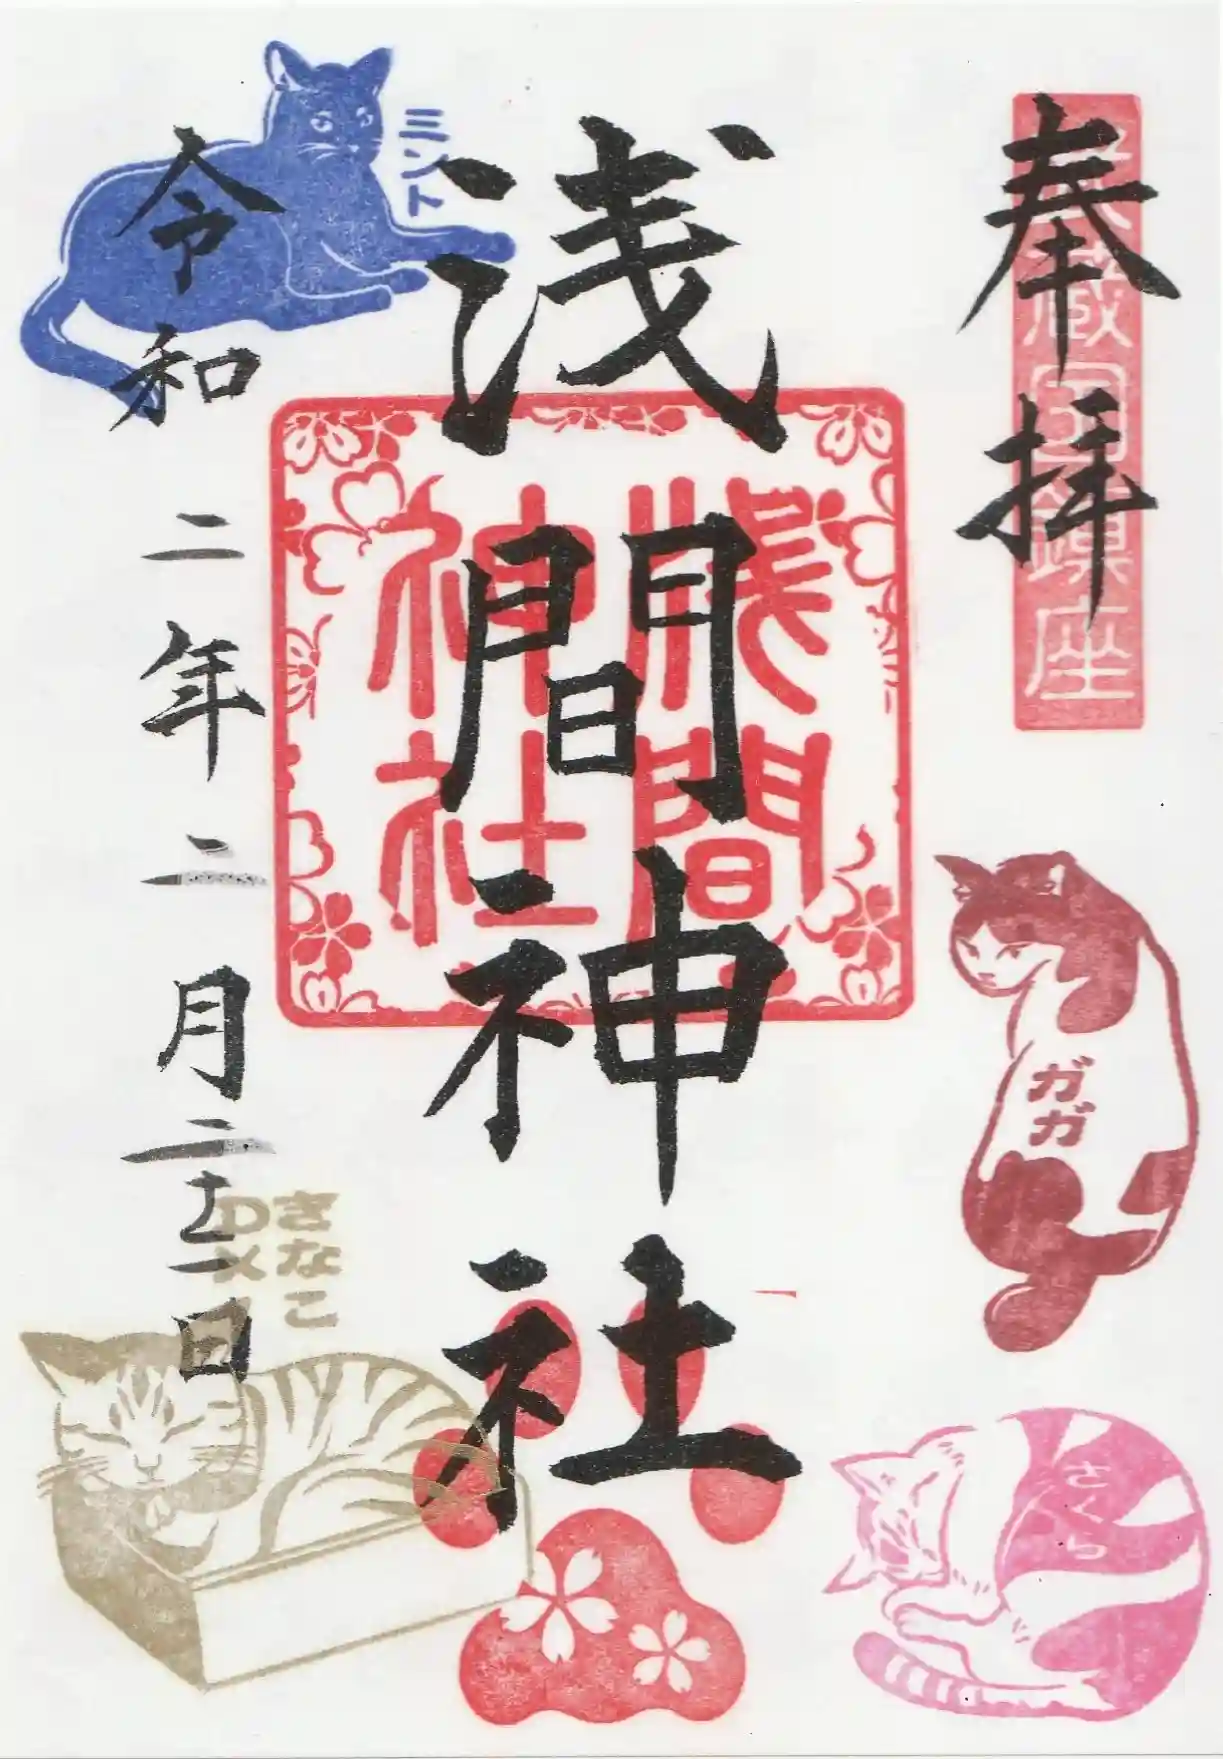 奉拝
武蔵国鎮座
浅間神社
浅間
神社
令和二年二月二十二日
ミント
ガガ
さくら
きなこ
DX